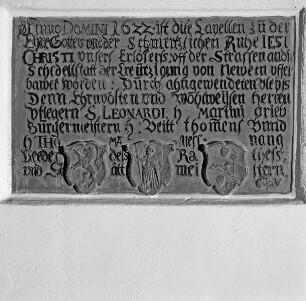 ANNO DOMINI 1622 ist die Capellen zu der
Ehre Gottes und der Schmertzlichen Ruhe IESI
CHRISTI unsers Erlösers vff der Strassen auf die
Schedelstatt der Creützigung von Newem vffer
bawet worden: Durch abgewendeten dleys
Denn Ehrnvösten und Wohlweisen herren
Pflegern S. LEONARDI, h. Martini grieb
Bürgermeistern h. Veitt thomens Bund
h. THO MA nes nang
Beede des Ra thes
und S att mei stern